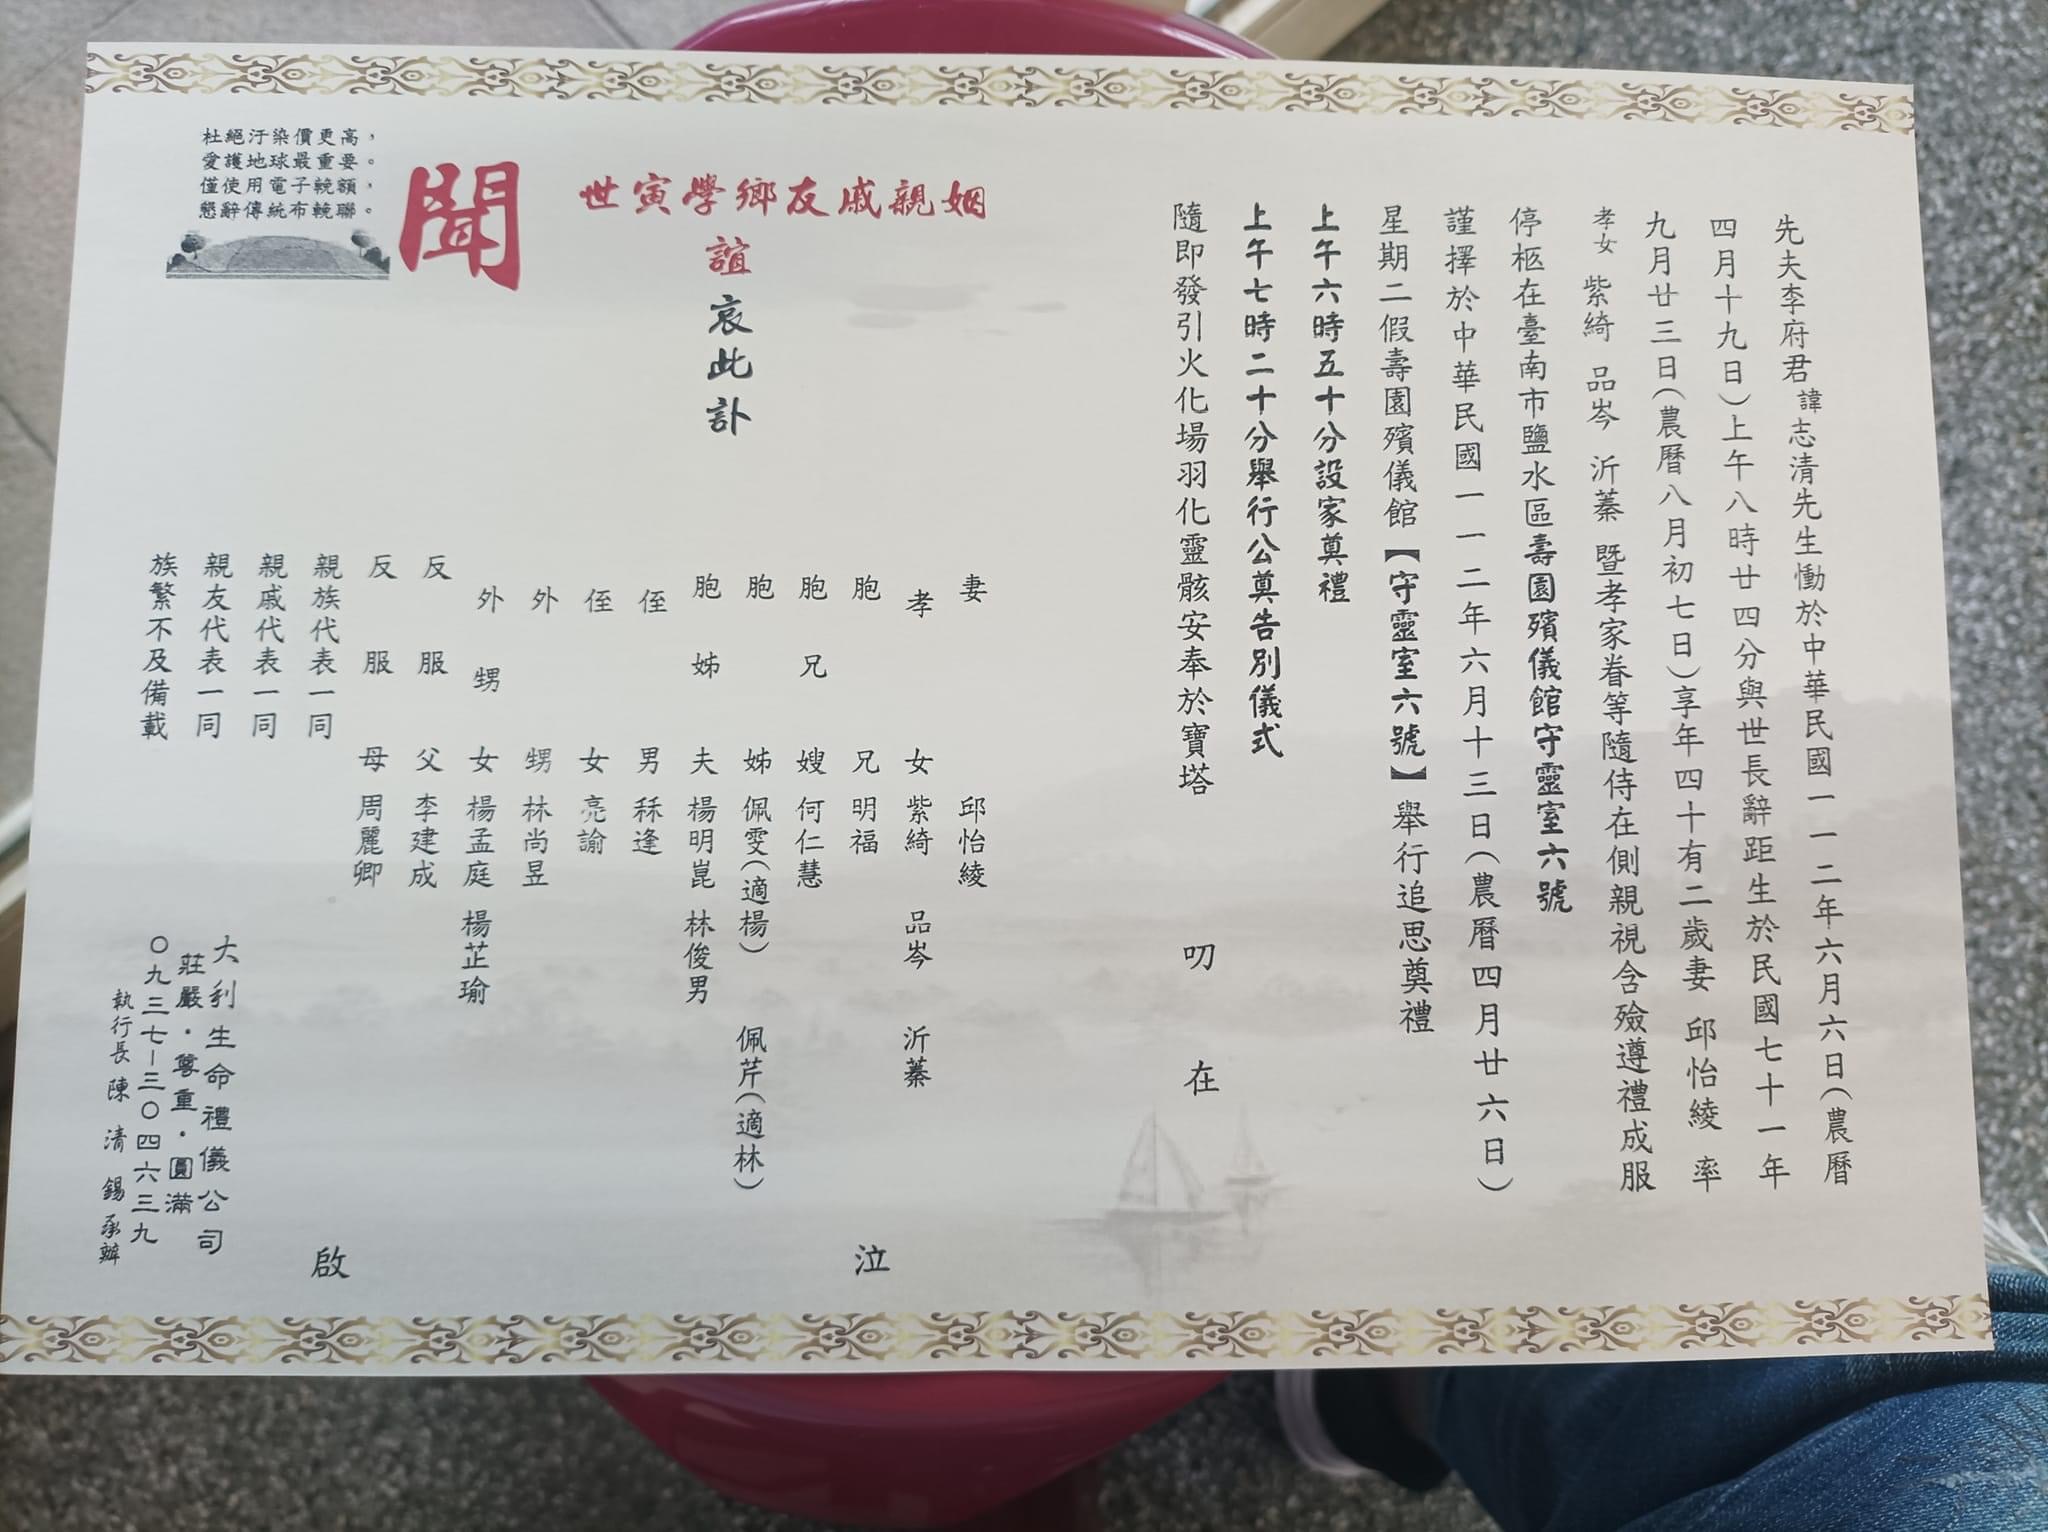 先夫李府君諱志清先生慟於中華民國一一二年六月六日(農曆
四月十九日)上午八時廿四分與世長辭距生於民國七十一年
九月廿三日(農曆八月初七日)享年四十有二歲妻 邱怡綾 率
孝女 紫綺 品岑 沂蓁 暨孝家眷等隨侍在側親視含殮遵禮成服
停柩在臺南市鹽水區壽園殯儀館守靈室六號
謹擇於中華民國一一二年六月十三日(農曆四月廿六日)
星期二假壽園殯儀館【守靈室六號】舉行追思奠禮
上午六時五十分設家奠禮
上午七時二十分舉行公奠告別儀式
隨即發引火化場羽化靈骸安奉於寶塔
叨在
姻親戚友鄉學寅世
誼 哀此訃
聞
妻 邱怡綾
孝女 紫綺 品岑 沂蓁
胞兄 明福
胞兄嫂 何仁慧
胞姊 佩雯(適楊) 佩芹(適林)
胞姊夫 楊明崑 林俊男
侄男 秝逢
侄女 亮諭
外甥 林尚昱
外甥女 楊孟庭 楊芷瑜
反服父 李建成
反服母 周麗卿
親族代表一同
親戚代表一同
親友代表一同
族繁不及備載
泣
啟
杜絕汙染價更高，
愛護地球最重要。
僅使用電子輓額，
懇辭傳統布輓聯。
大利生命禮儀公司
莊嚴・尊重・圓滿
〇九三七－三〇四六三九
執行長 陳清錫 承辦